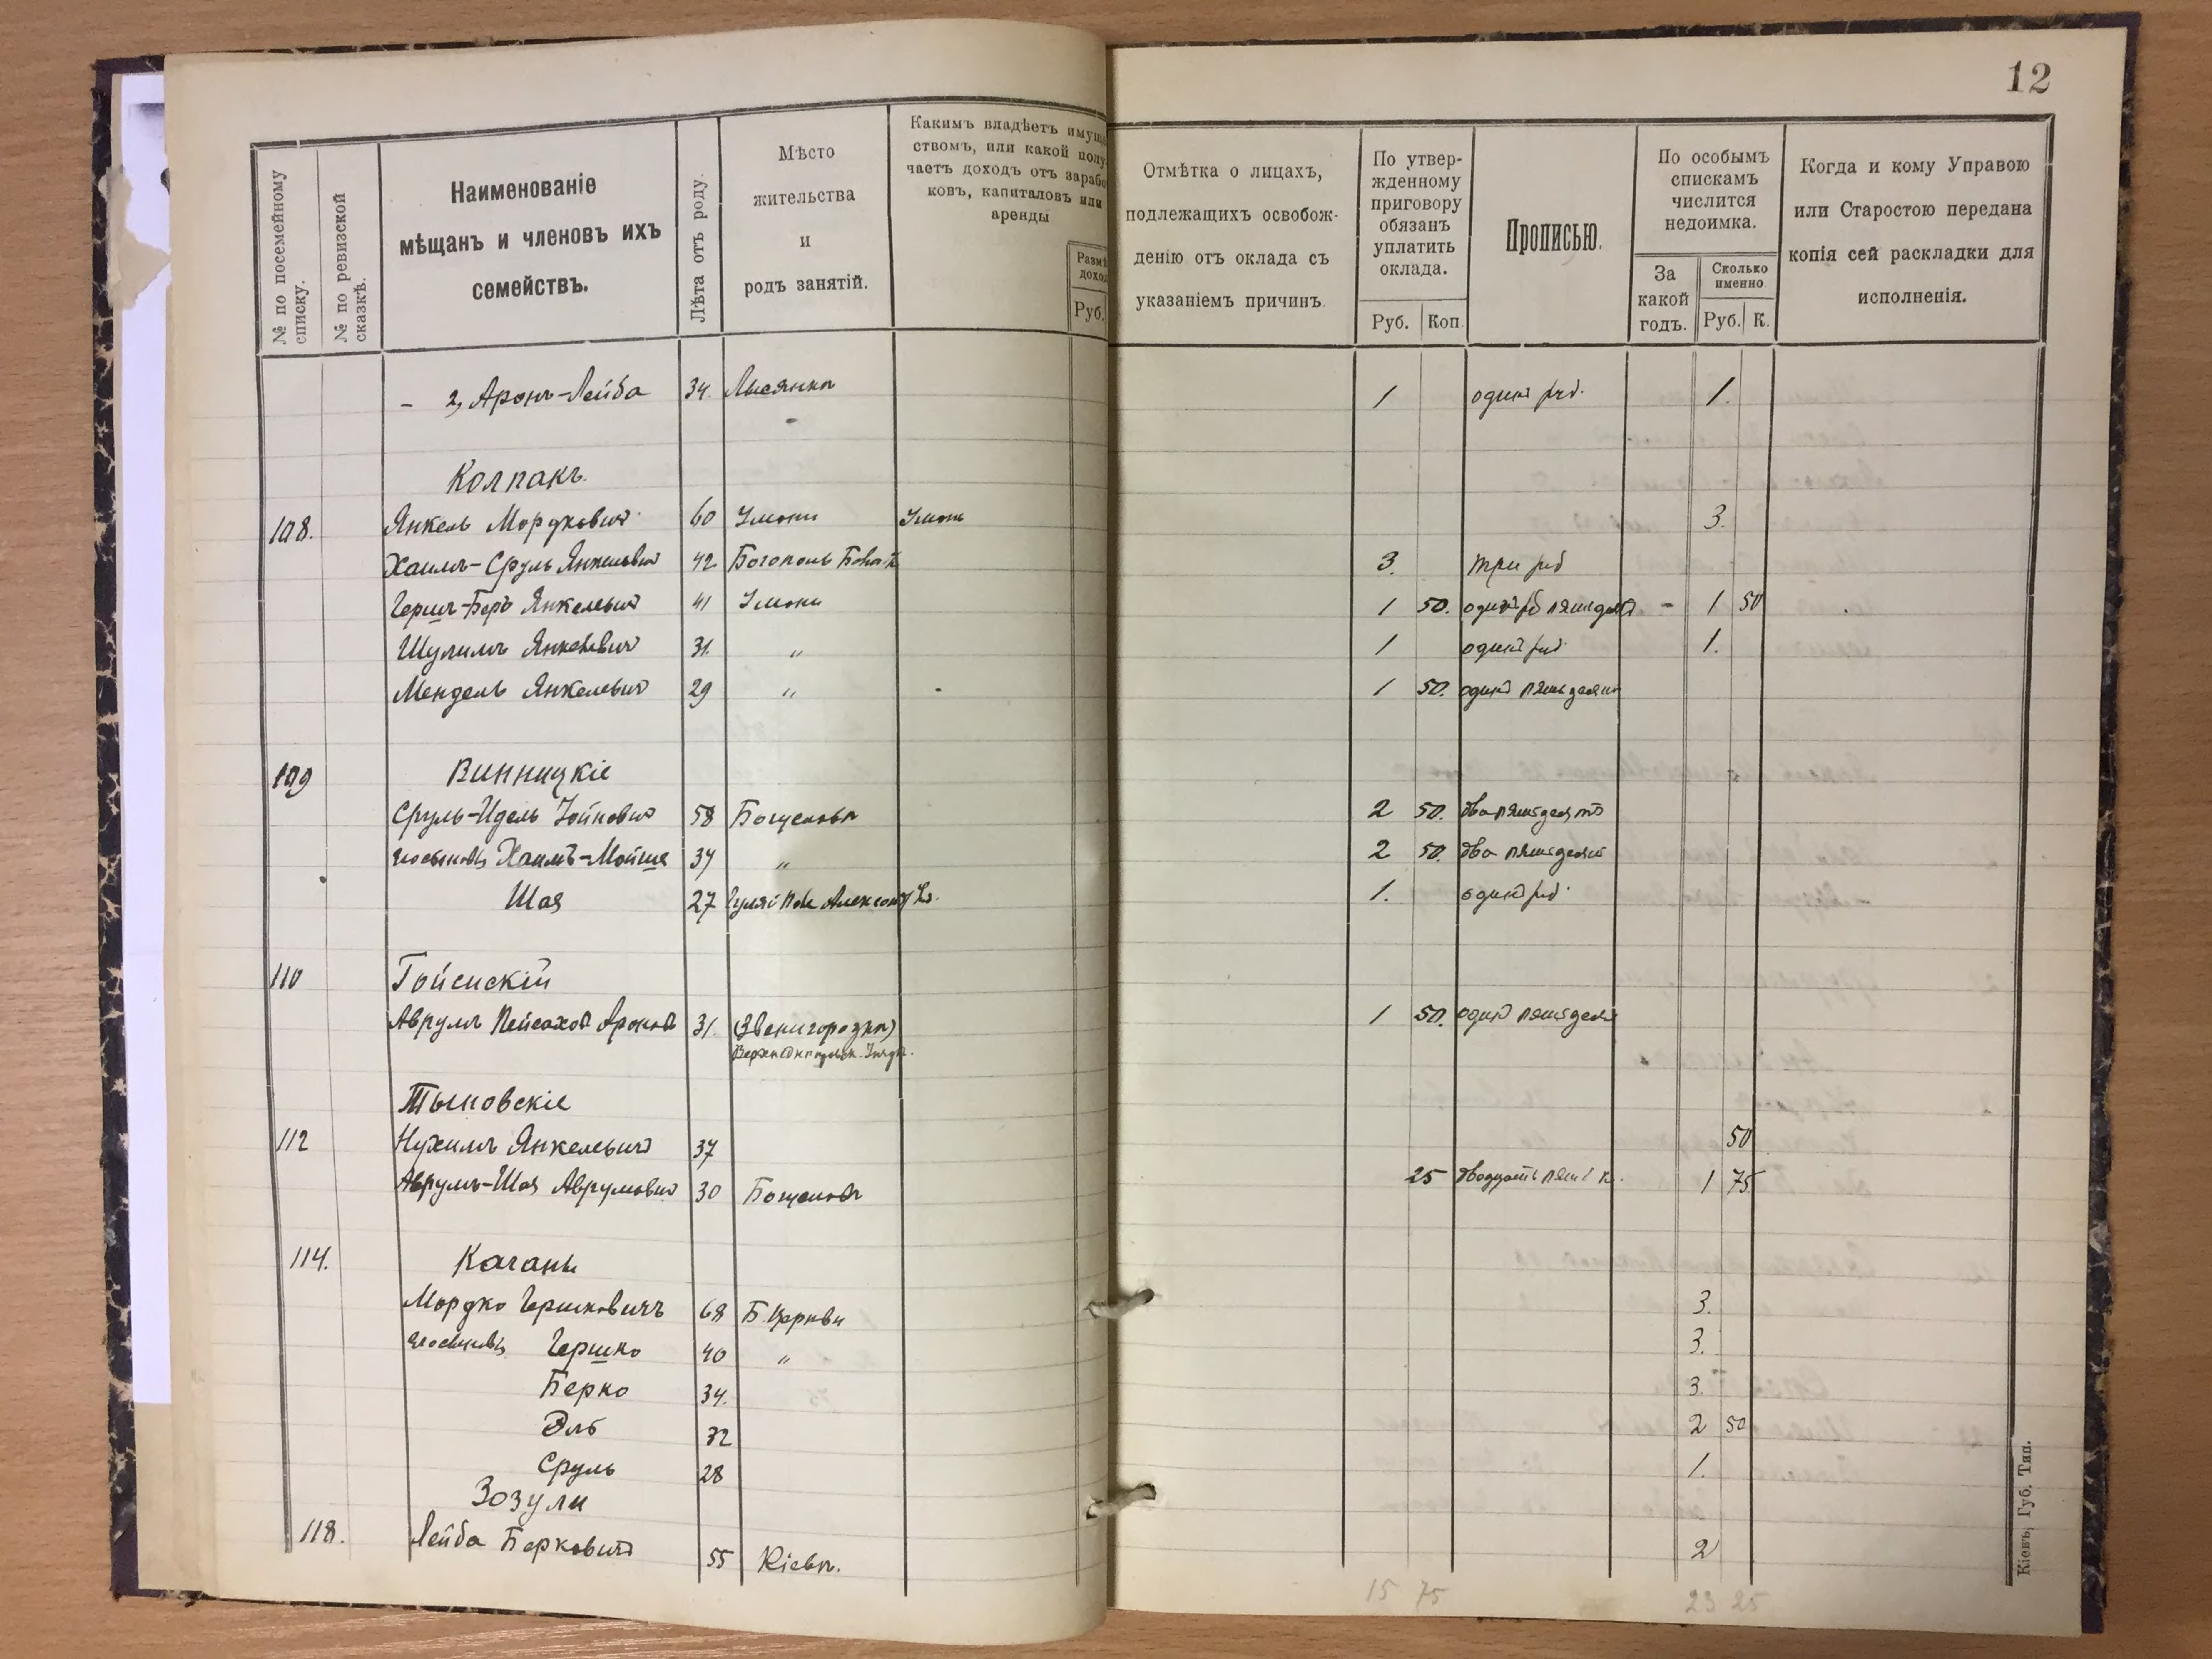 12
№ по посемейному списку.
№ по ревизской сказкѣ.
Наименованіе
мѣщанъ и членовъ ихъ
семействъ.
Лѣта отъ роду.
Мѣсто
жительства
и
родъ занятій.
Какимъ владѣетъ имуще
ствомъ, или какой полу
чаетъ доходъ отъ зарабо
ковъ, капиталовъ или
аренды
Размѣ
доход
Руб.
Отмѣтка о лицахъ,
подлежащихъ освобож-
денію отъ оклада съ
указаніемъ причинъ.
По утвер-
жденному
приговору
обязанъ
уплатить
оклада.
Руб. Коп.
Прописью.
По особымъ
спискамъ
числится
недоимка.
За
какой
годъ.
Сколько
именно.
Руб. К.
Когда и кому Управою
или Старостою передана
копія сей раскладки для
исполненія.
- 2, Аронъ-Лейба 34. Лисянка 1 одинъ руб. 1.
Колпакъ.
108. Янкель Мордковичъ 60 Умань Умань 3.
Хаимъ-Сруль Янкелевичъ 42 Богополь 3. три руб
Гершъ-Беръ Янкелевичъ 41 Умань 1 50. одинъ рб пятьдесят - 1 50
Шулимъ Янкелевичъ 31. " 1 один руб. 1.
Мендель Янкелевичъ 29 " 1 50. один пятьдесят
109 Винницкіе
Сруль-Идель 58 Богуславъ 2 50. два пятьдесятъ
Хаимъ-Мойше 37 " 2 50. два пятьдесят
Шая 27 Гуляй Поле 1. один руб.
110 Гойсискій
Аврумъ Пейсахов Аронов 31. (Звенигородка) 1 50. один пятьдеся
Тыновскіе
112 Нухимъ Янкелевичъ 37 50
Аврумъ-Шая Аврумовичъ 30 Богуславъ 25 двадцать пять к. 1 75.
114. Каганы
Мордко Гершковичъ 68 Б. Церковь 3.
Гершко 40 " 3.
Берко 34. 3.
Эль 32 2 50
Сруль 28 1.
Зозули
118. Лейба Берковичъ 55 Кіевъ. 2
15 75 23 25
Кіевъ, Губ. Тип.